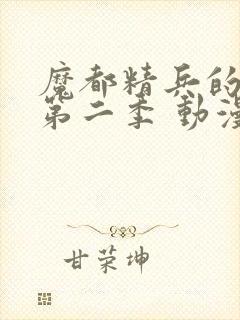 魔都精兵的
第二季 動漫
甘荣坤